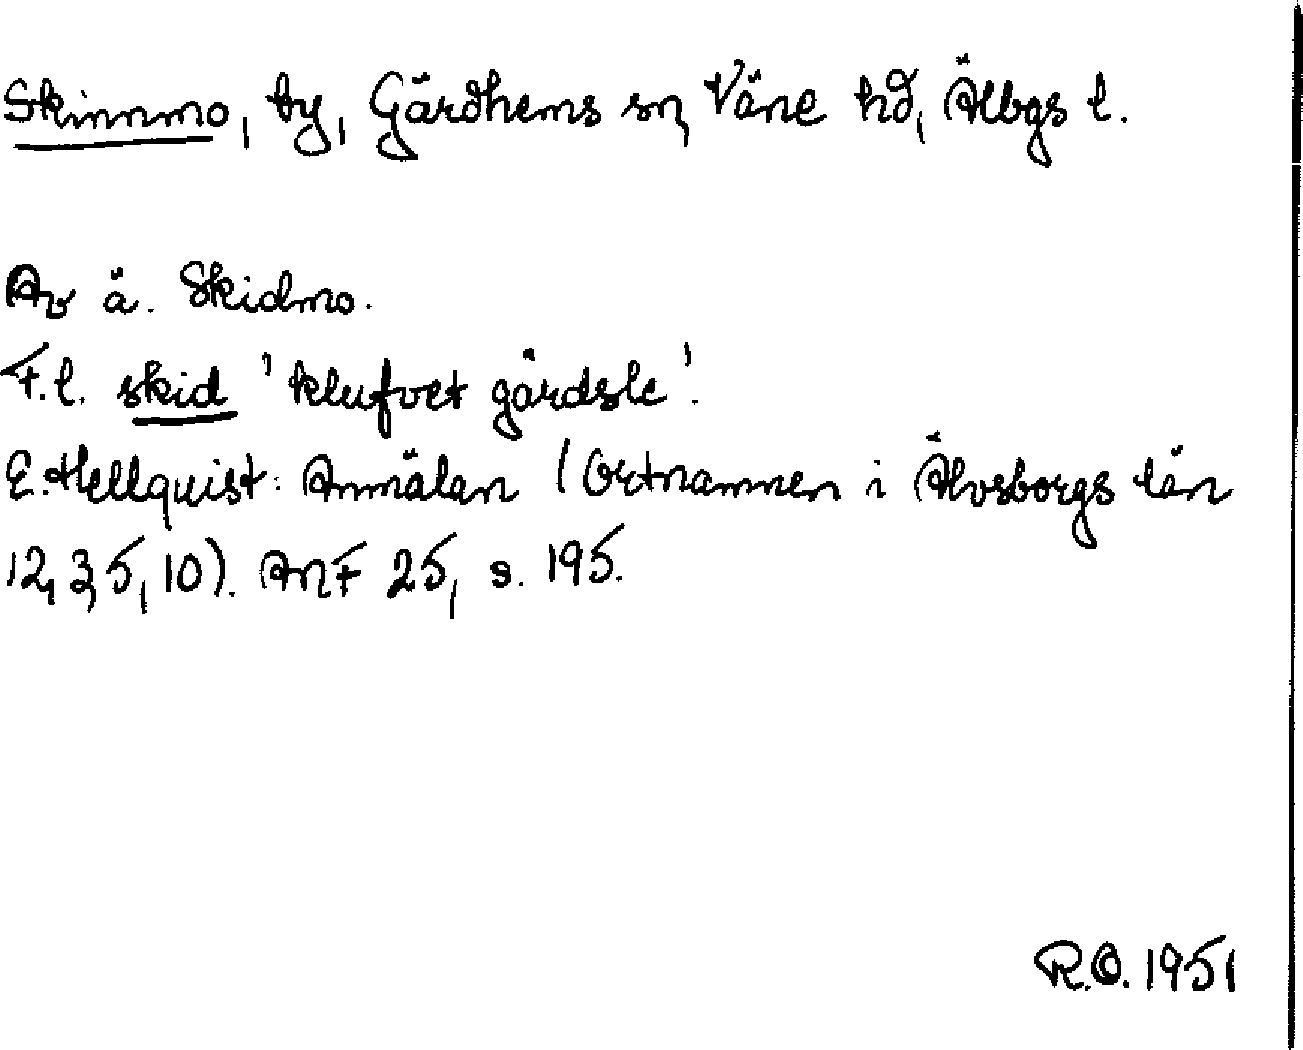 Skinnmo, by, Gärdhems sn, Väne hd, Älbgs l.
Av ä. Skidmo.
F.l. skid 'klufvet gärdsle'.
E. Hellquist: Anmälan (Ortnamnen i Älvsborgs län
12, 3, 5, 10). ANF 25, s. 195.
R.O. 1951